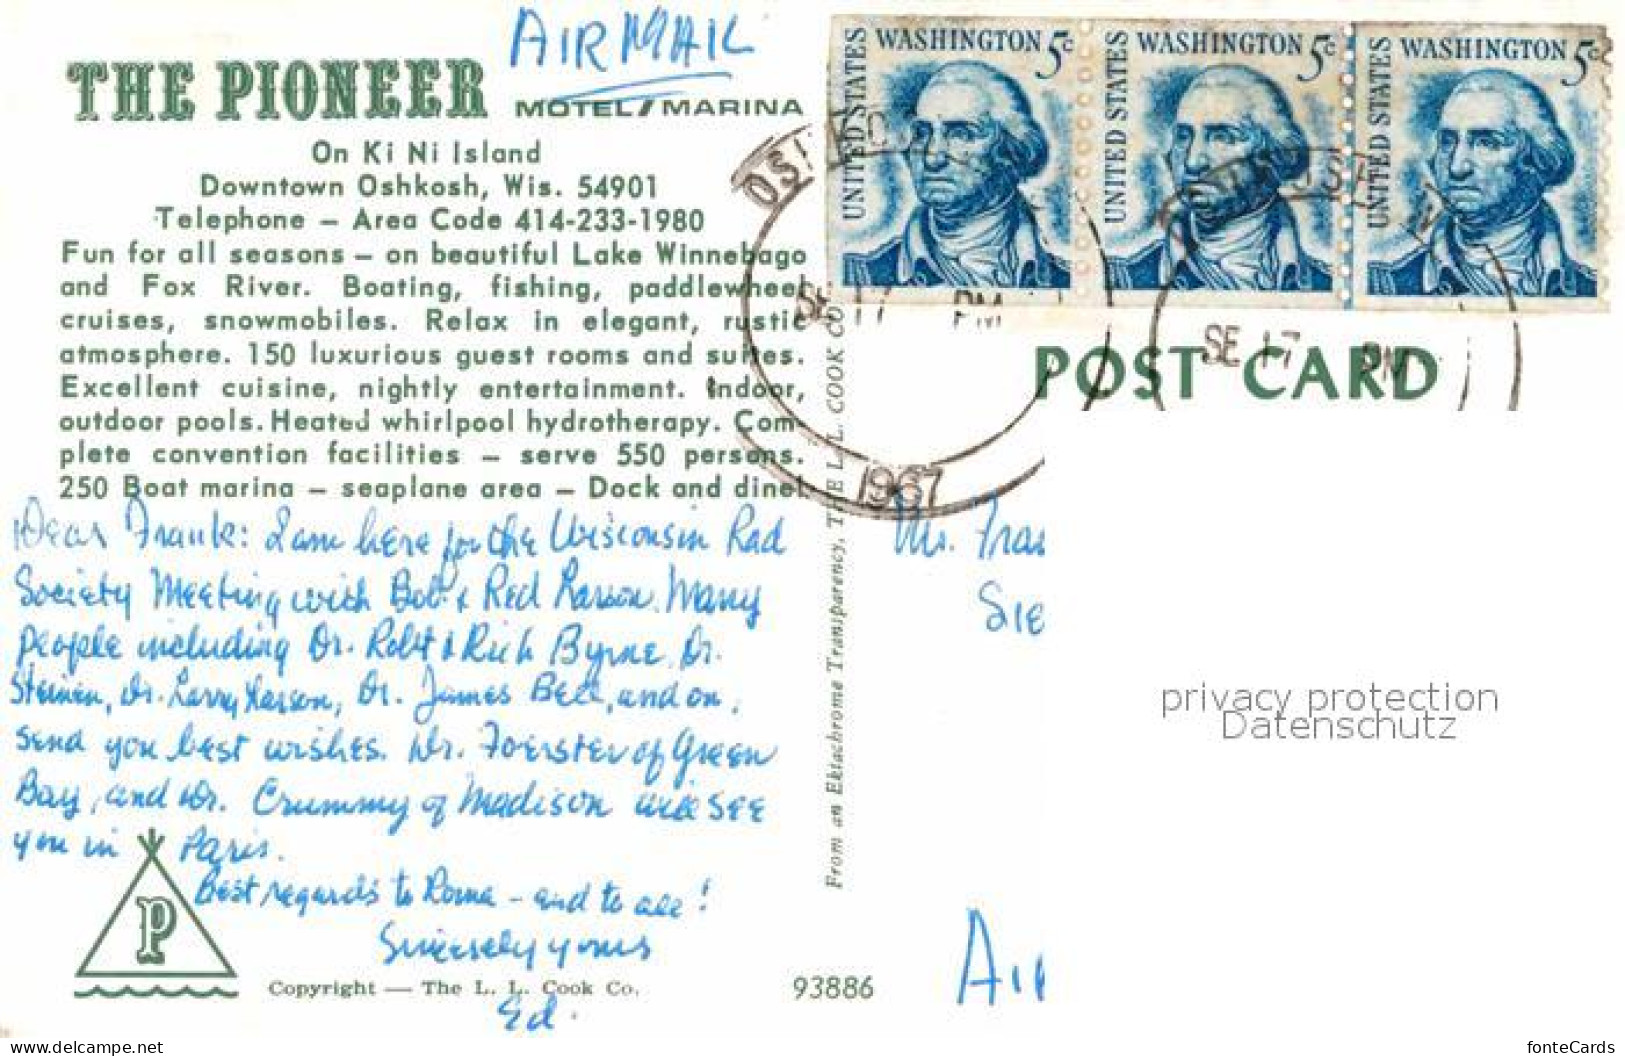 AIR MAIL
THE PIONEER MOTEL/MARINA
On Ki Ni Island
Downtown Oshkosh, Wis. 54901
Telephone — Area Code 414-233-1980
Fun for all seasons — on beautiful Lake Winnebago
and Fox River. Boating, fishing, paddlewheel
cruises, snowmobiles. Relax in elegant, rustic
atmosphere. 150 luxurious guest rooms and suites.
Excellent cuisine, nightly entertainment. Indoor,
outdoor pools. Heated whirlpool hydrotherapy. Com-
plete convention facilities — serve 550 persons.
250 Boat marina — seaplane area — Dock and dine!
Dear Frank: I am here for the Wisconsin Rad
Society Meeting with Bob & Red Larson. Many
people including Dr. Rolf & Rich Byrne, Dr.
Steinen, Dr. Larry Larson, Dr. James Bell, and on,
send you best wishes. Dr. Foerster of Green
Bay, and Dr. Crummy of Madison will see
you in Paris.
Best regards to Roma – and to all!
Sincerely yours
Ed.
P
Copyright — The L. L. Cook Co.
93886
From an Ektachrome Transparency, THE L. L. COOK CO
UNITED STATES WASHINGTON 5c
UNITED STATES WASHINGTON 5c
UNITED STATES WASHINGTON 5c
SE 17 PM
1967
SE 17 PM
POST CARD
Mr. Fran
Sie
privacy protection
Datenschutz
Air
www.delcampe.net
fonteCards